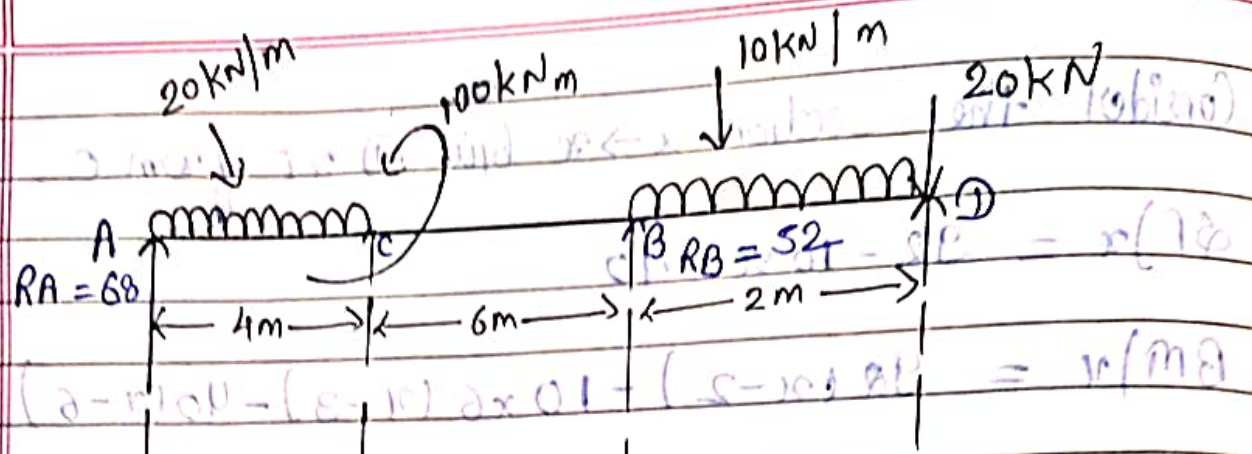 20kN/m
100kNm
10kN/m
20kN
A
C
B
D
RA = 68
RB = 52
4m
6m
2m